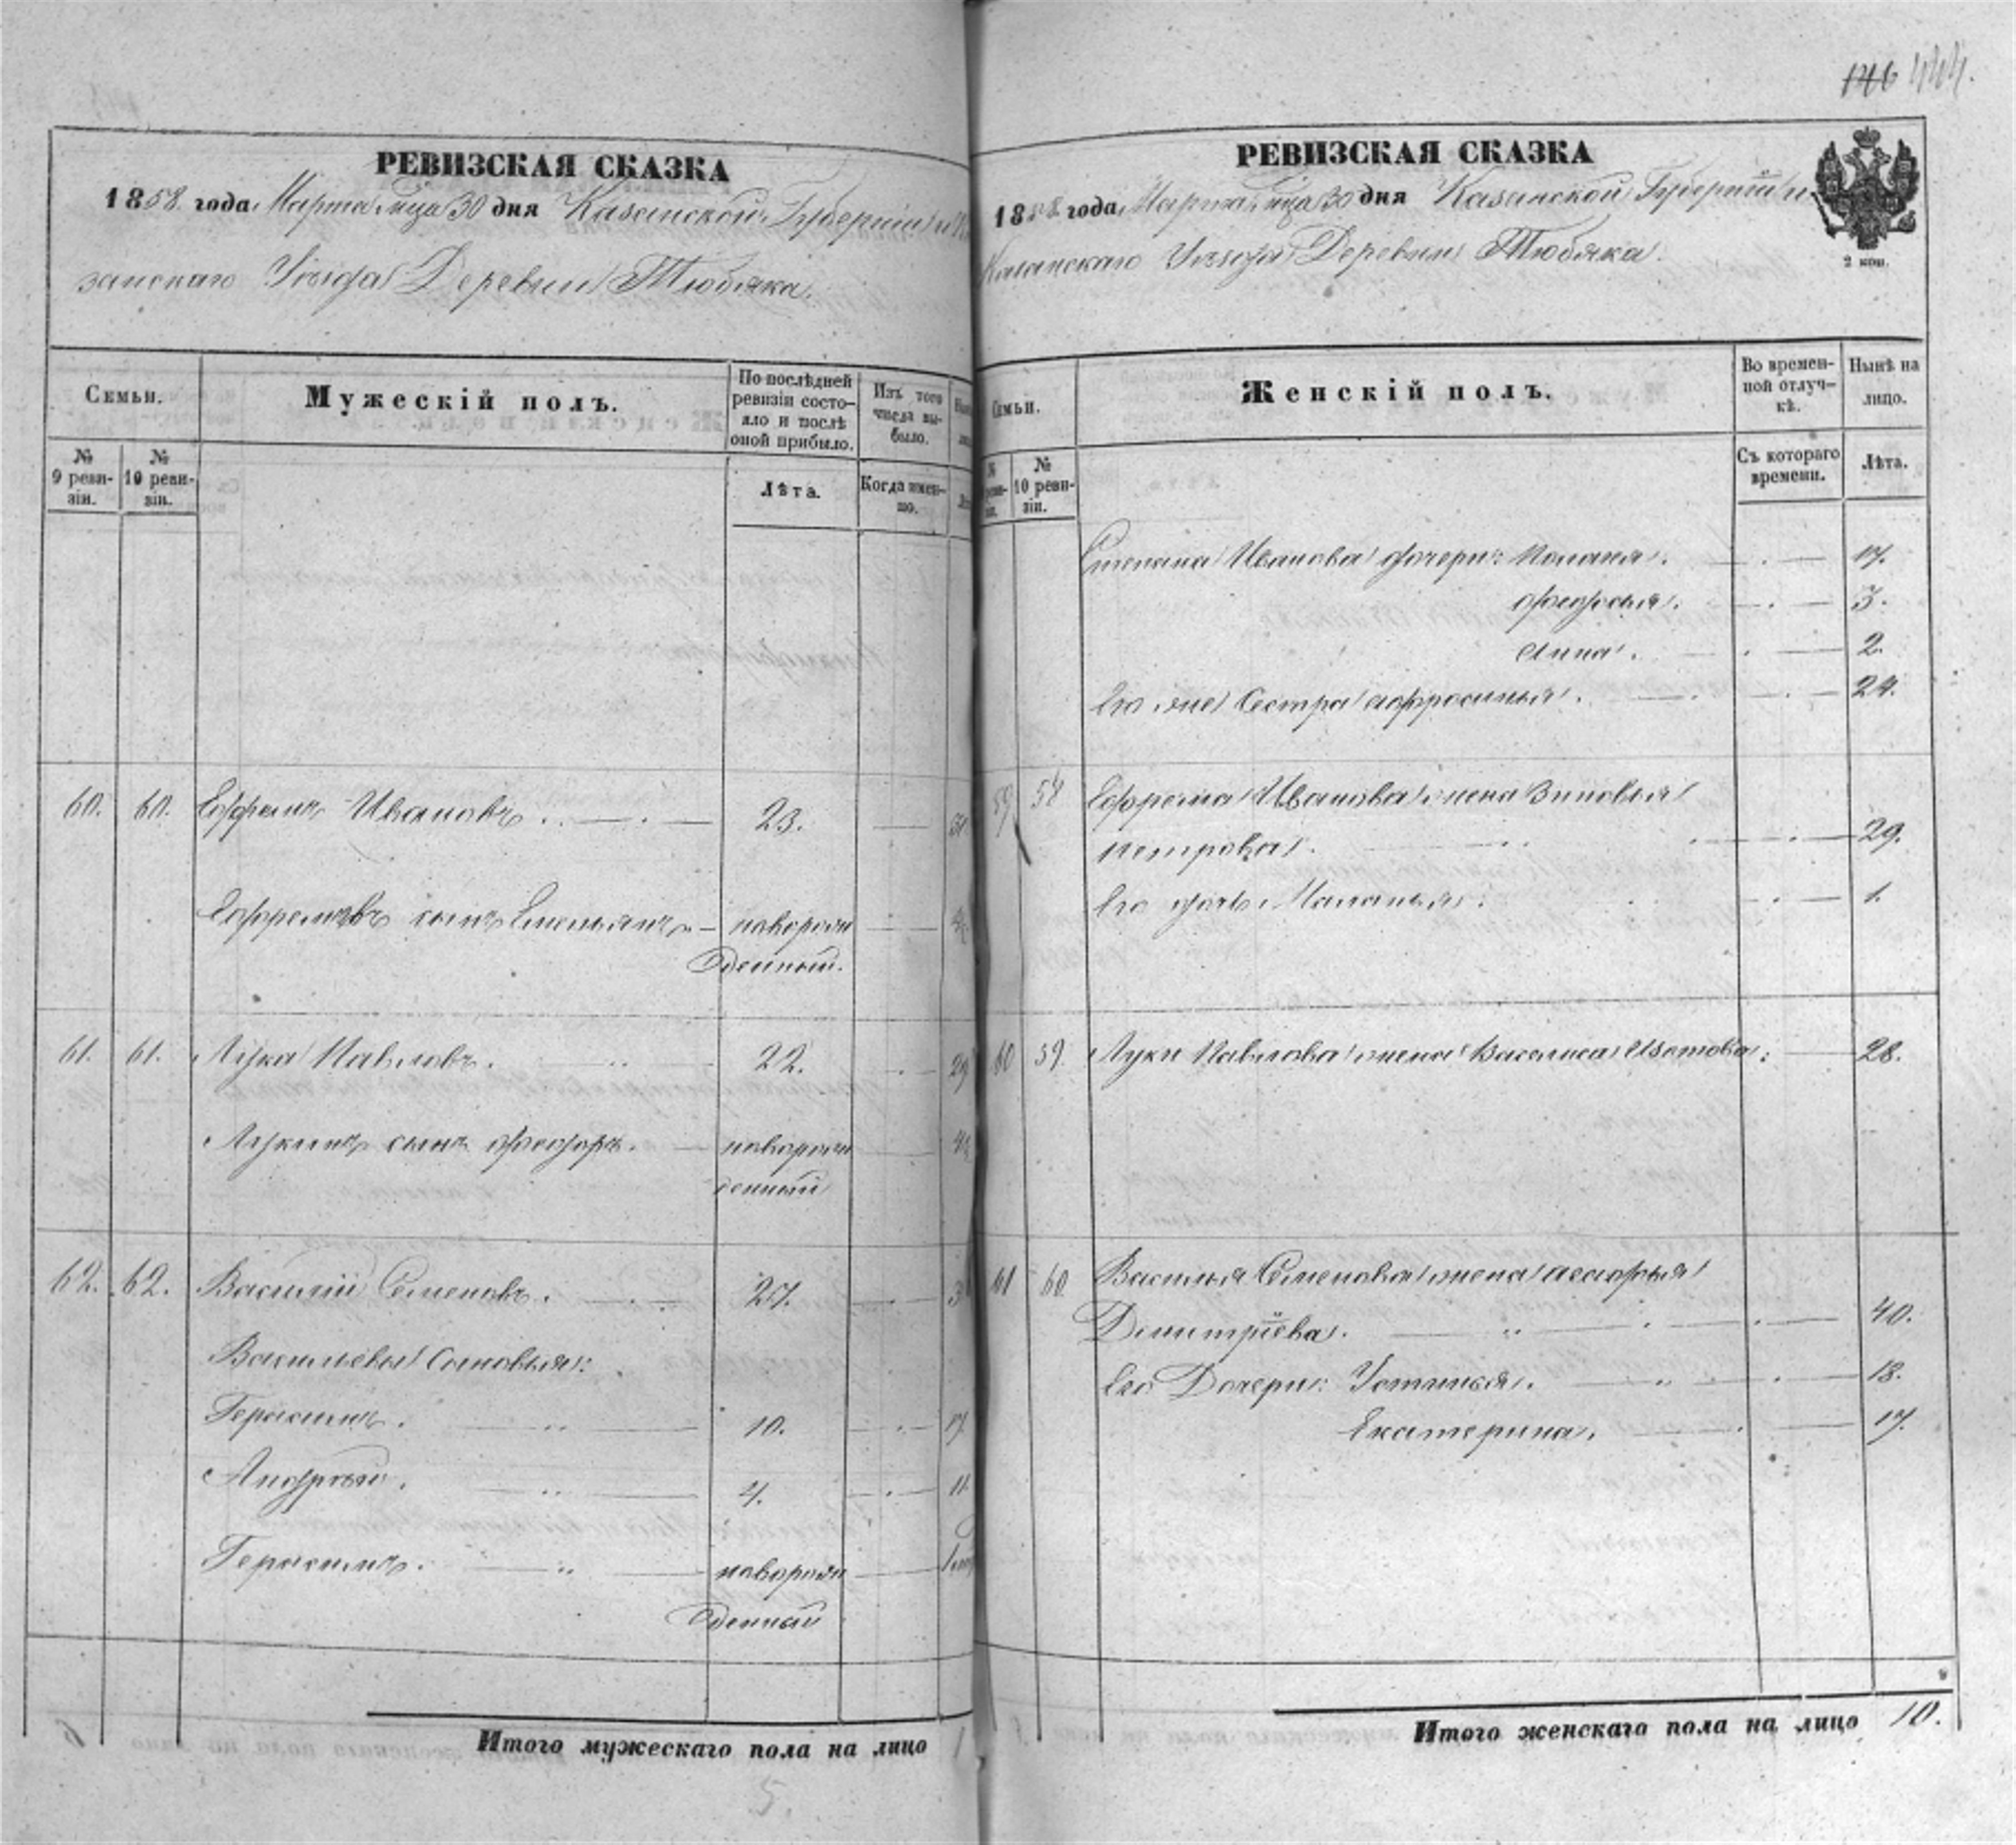 РЕВИЗСКАЯ СКАЗКА
1858 года Марта м҃ца 30 дня Казанской Губерніи
занскаго Уѣзда Деревни Тюбяка.
Семьи.
Мужескій полъ.
По послѣдней
ревизіи состо-
яло и послѣ
оной прибыло.
Изъ того
числа вы-
было.
№
9 реви-
зіи.
№
10 реви-
зіи.
Лѣта.
Когда имен-
но.
60. 60. Ефремъ Ивановъ. 23.
Ефремовъ сынъ Емельянъ новорож
денный.
61. 61. Лука Павловъ. 22. 29
Лукинъ сынъ Феодоръ. новорож
денный
62. 62. Василій Семеновъ. 27.
Васильевы сыновья:
Герасимъ. 10. 17
Андрей. 4. 11.
Герасимъ. новорож
денный
Итого мужескаго пола на лицо
5.
146 444.
РЕВИЗСКАЯ СКАЗКА
1858 года Марта м҃ца 30 дня Казанской Губерніи и
Казанскаго Уѣзда Деревни Тюбяка.
2 коп.
Семьи.
Женскій полъ.
Во времен-
ной отлуч-
кѣ.
Нынѣ на
лицо.
№
10 реви-
зіи.
Съ котораго
времени.
Лѣта.
Степана Иванова дочери: Пелагея. 17.
Феодосья. 3.
Анна. 2.
Его же сестра Афросинья. 24.
59 58 Ефрема Иванова жена Зиновья
Петрова. 29.
Его дочь Маланья. 1.
60 59. Луки Павлова жена Василиса Изотова. 28.
61 60 Василья Семенова жена Агафья
Димитріева. 40.
Его Дочери: Устинья. 18.
Екатерина. 17.
Итого женскаго пола на лицо 10.